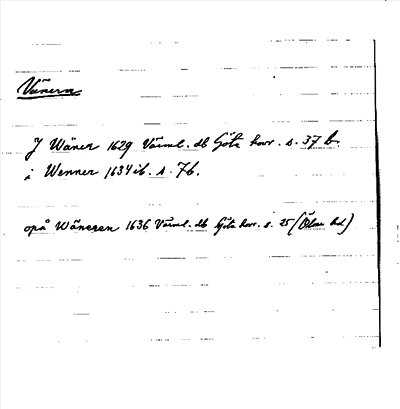 Vänern
J Wäner 1629 Värml. db Göta hovr. s. 37 b.
i Wenner 1634 ib. s. 76.
opå Wäneren 1636 Värml. db Göta hovr. s. 25 (Ölme hd)